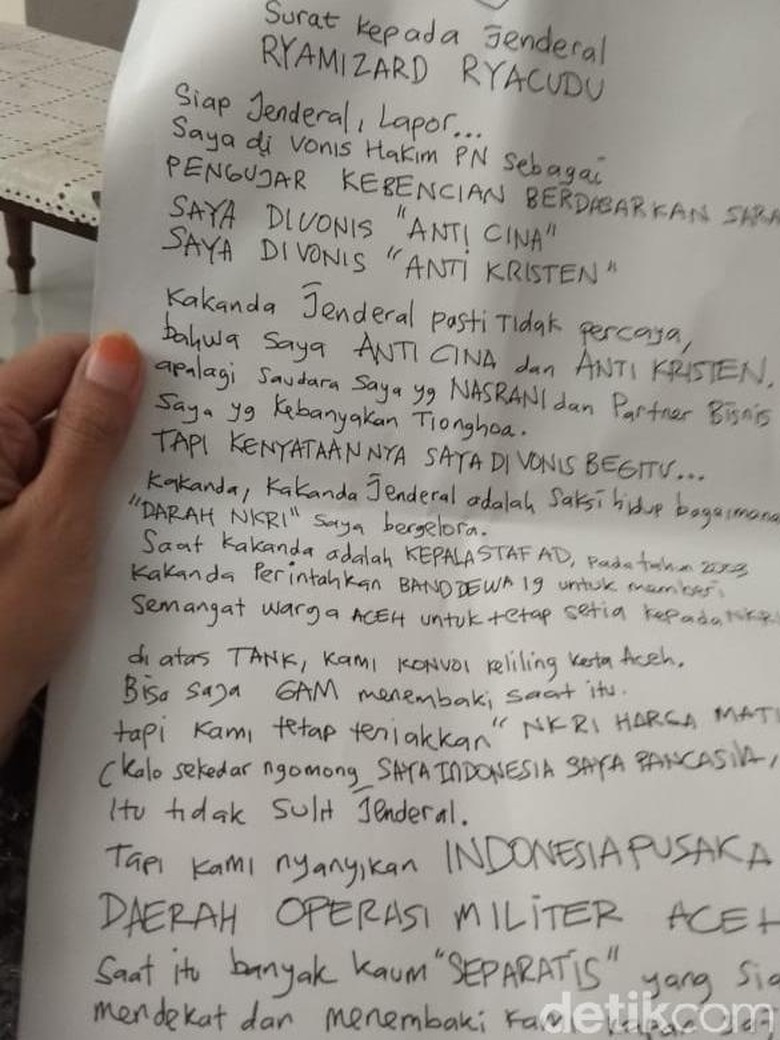 Surat kepada Jenderal
RYAMIZARD RYACUDU
Siap Jenderal, Lapor...
Saya di vonis Hakim PN sebagai
PENGUJAR KEBENCIAN BERDASARKAN SARA
SAYA DIVONIS "ANTI CINA"
SAYA DIVONIS "ANTI KRISTEN"
Kakanda Jenderal pasti tidak percaya,
bahwa saya ANTI CINA dan ANTI KRISTEN,
apalagi saudara saya yg NASRANI dan Partner Bisnis
Saya yg kebanyakan Tionghoa.
TAPI KENYATAANNYA SAYA DIVONIS BEGITU...
Kakanda, Kakanda Jenderal adalah saksi hidup bagaimana
"DARAH NKRI" saya bergelora.
Saat kakanda adalah KEPALA STAF AD, pada tahun 2003
Kakanda Perintahkan BAND DEWA 19 untuk memberi
Semangat warga ACEH untuk tetap setia kepada NKRI
di atas TANK, kami KONVOI keliling kota Aceh.
Bisa saja GAM menembaki saat itu.
tapi kami tetap teriakkan "NKRI HARGA MATI
(kalo sekedar ngomong SAYA INDONESIA SAYA PANCASILA,
Itu tidak sulit Jenderal.
Tapi kami nyanyikan INDONESIA PUSAKA
DAERAH OPERASI MILITER ACEH
Saat itu banyak kaum "SEPARATIS" yang
mendekat dan menembaki kami kapan
detikcom